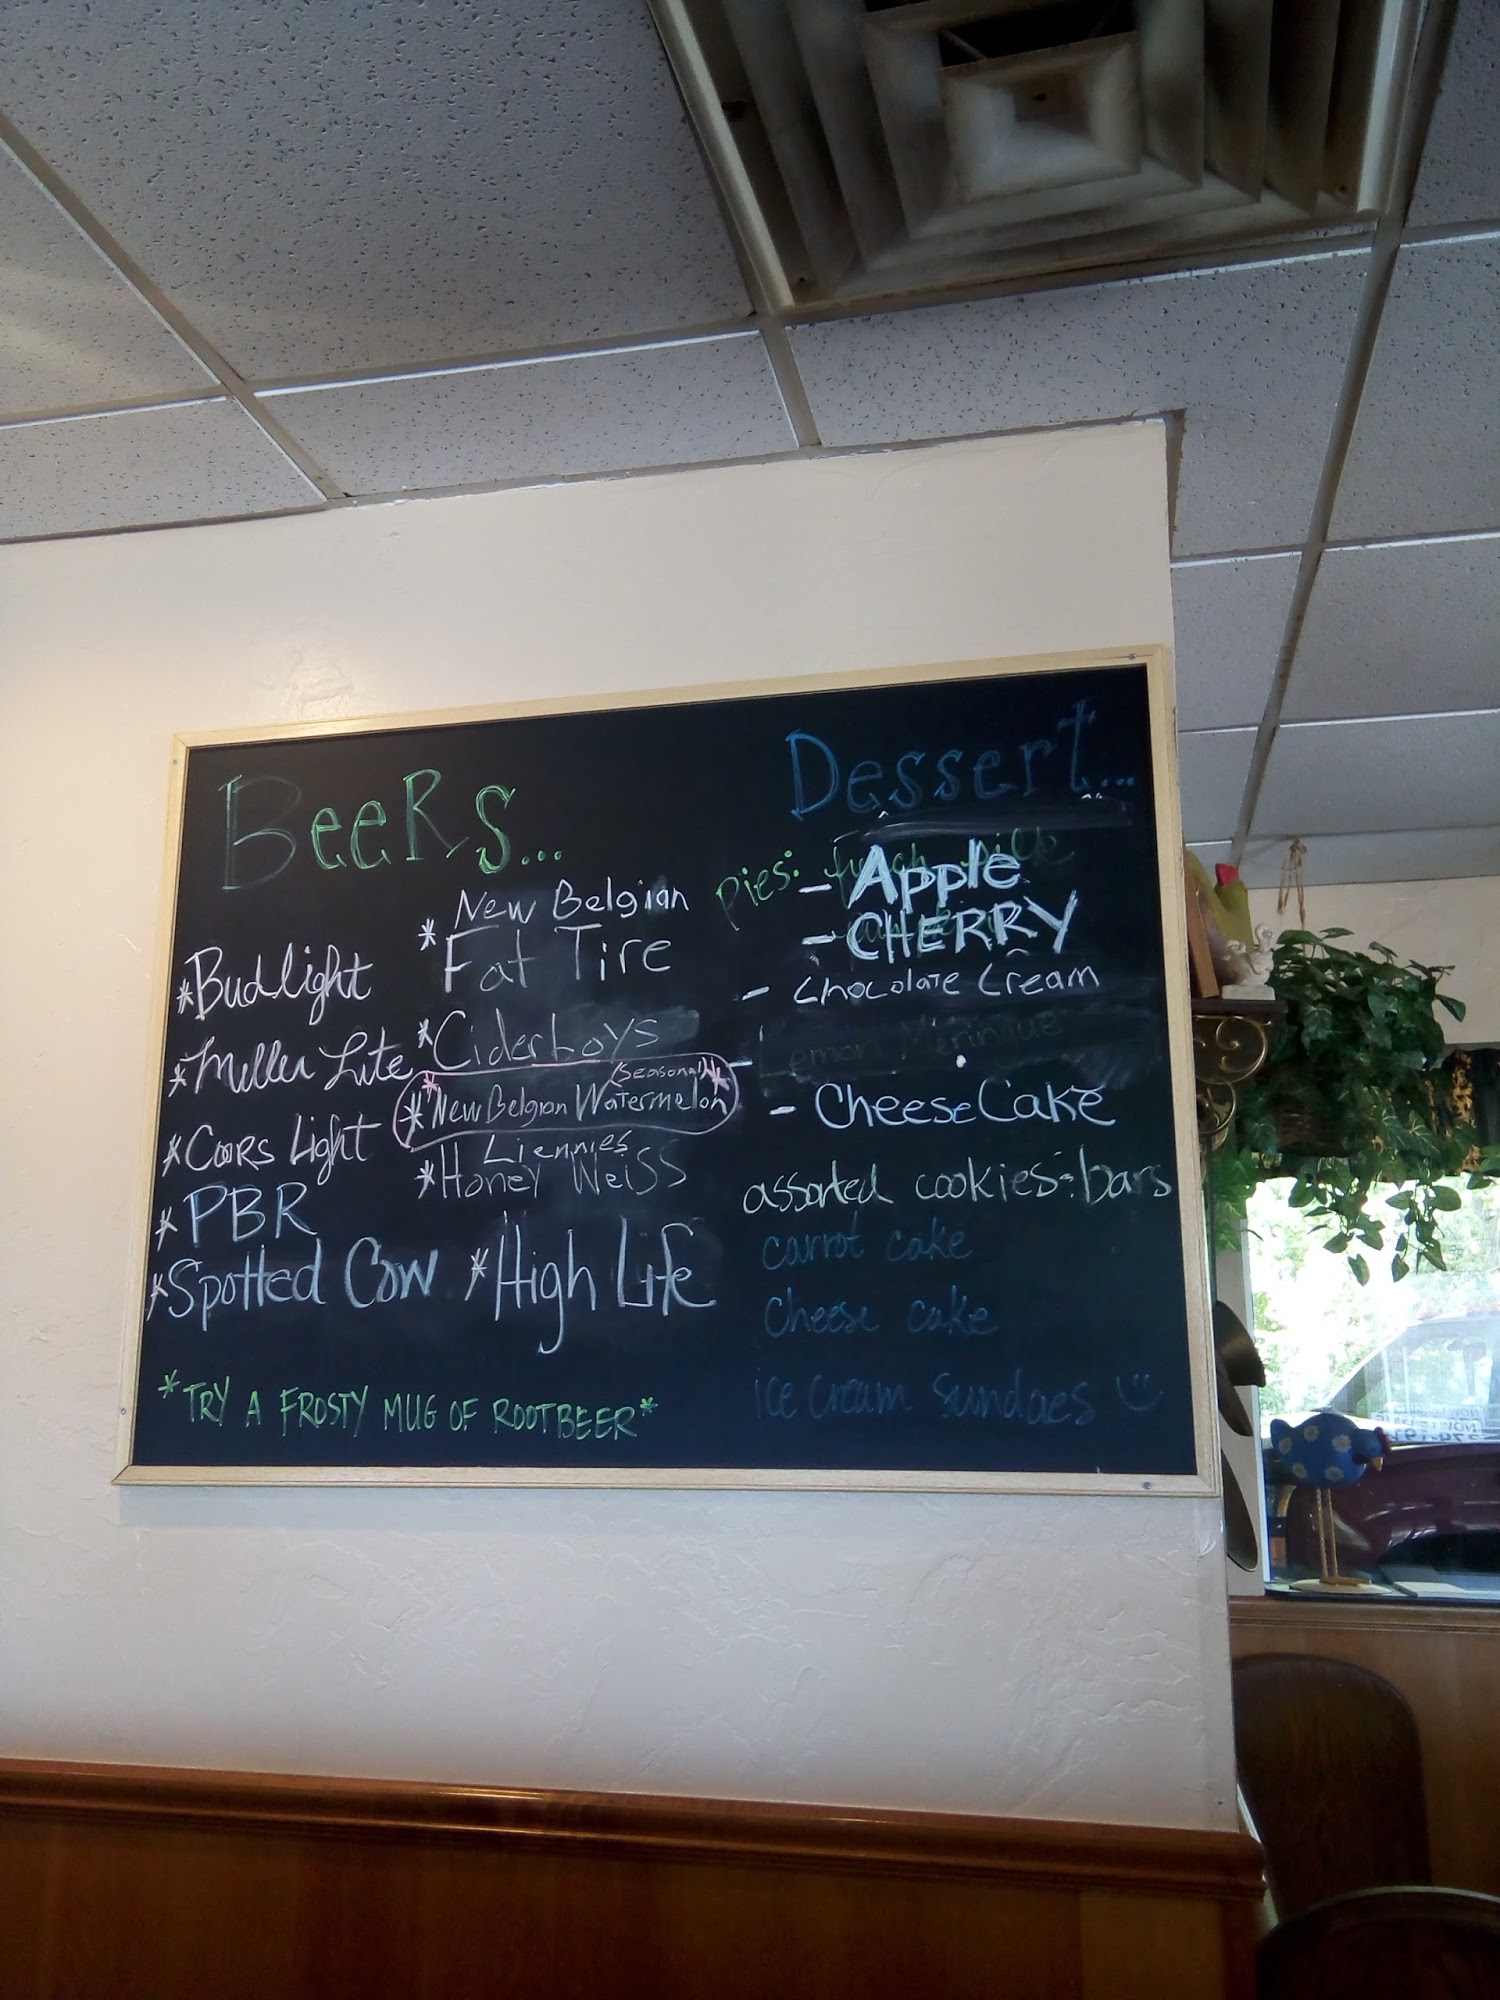 BeeRs...
*Bud light
*Miller Lite
*Coors Light
*PBR
*Spotted Cow
New Belgian
*Fat Tire
*Ciderboys
(Seasonal)
*New Belgian Watermelon*
Liennies
*Honey Weiss
*High Life
*TRY A FROSTY MUG OF ROOTBEER*
Dessert...
pies:
- Apple
- CHERRY
- Chocolate Cream
- Lemon Meringue
- CheeseCake
assorted cookies & bars
carrot cake
cheese cake
ice cream sundaes